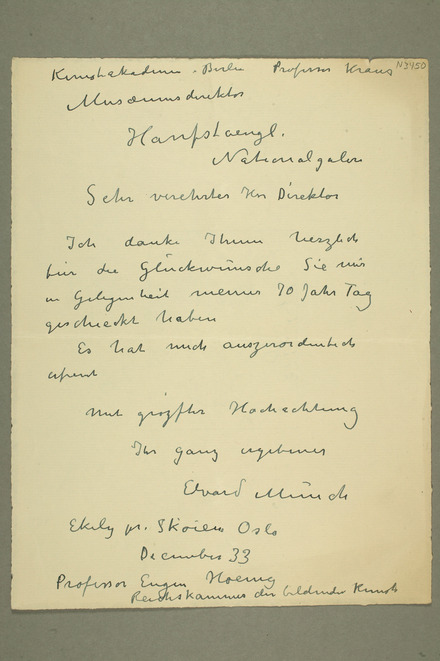 Kunstakademie. Berlin Professor Kraus N3450
Musæumsdirektor
Hanfstaengl.
Nationalgaleri
Sehr verehrter Her Direktor
Ich danke Ihnen herzlich
für die Glückwünsche Sie mir
in Gelegenheit meines 70 Jahr Tag
geschieckt haben
Es hat mich auszerordentlich
erfreut
mit grözster Hochachtung
Ihr ganz ergebener
Edvard Munch
Ekely pr. Sköien Oslo
December 33
Professor Eugen Hoenig
Reichskammer der bildender Kunst